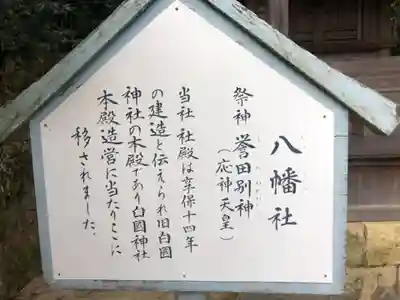 八幡社
祭神 誉田別神
(応神天皇)
当社社殿は享保十四年
の建造と伝えられ旧白國
神社の本殿であり白國神社
本殿造営に当たりここに
移されました。